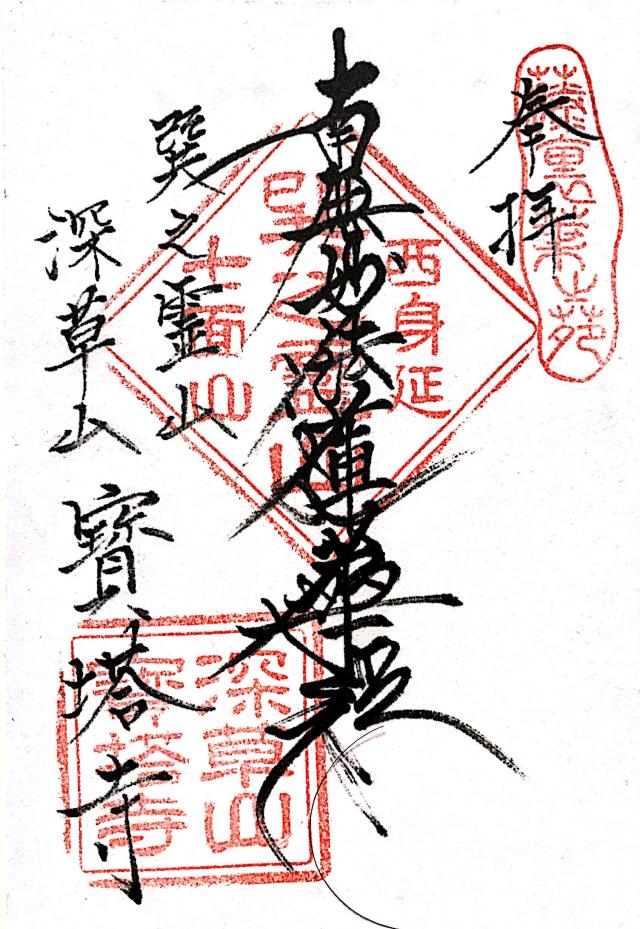 奉拝
南無妙法蓮華経
巽之霊山
深草山 寳塔寺
西身延
巽之霊山
十二面山
深草山
寳塔寺